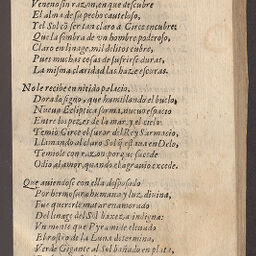 Veneno sin razon, en que descubre
El alma de su pecho cauteloso,
Tel Sol cõ ser tan claro à Circe encubre:
Que la sombra de un hombre poderoso,
Claro en linage, mil delitos cubre,
Pues muchas cosas de sufrirse duras,
La misma claridad las haze escuras.
No le recibe en nitido palacio,
Dorado signo, que humillando el buelo,
Nueva Ecliptica forma, nuevo espacio
Entre los pezes de la mar, y el cielo:
Temiò Circe el furor del Rey Sarmacio,
Llamando al claro Sol q̃ estava en Delo,
Temiole con razon, porque sucede
Odio al amor, quando el agravio excede.
Que aviendose con ella desposado
Por hermosura humana y luz divina,
Fue querer te matar enamorado
Del linage del Sol baxeza indigna:
Un monte que Pyramide elevado
El rostro de la Luna determina,
Verde Gigante al Sol bañado en plata,